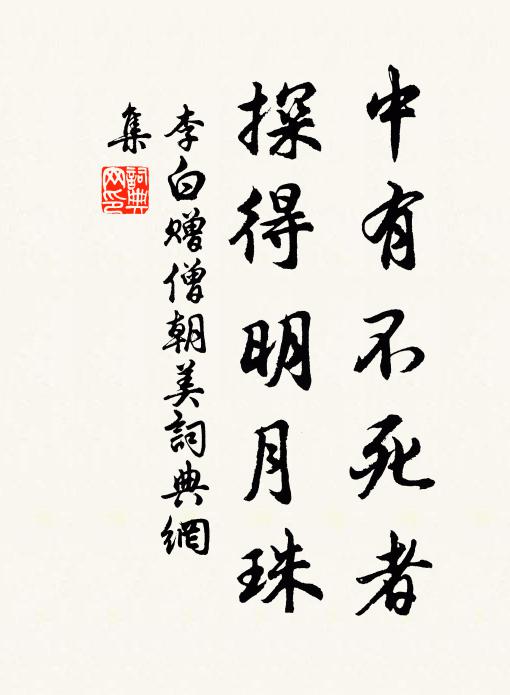 中有不死者
探得明月珠
李白赠僧朝美詞典網
集
詞典网印